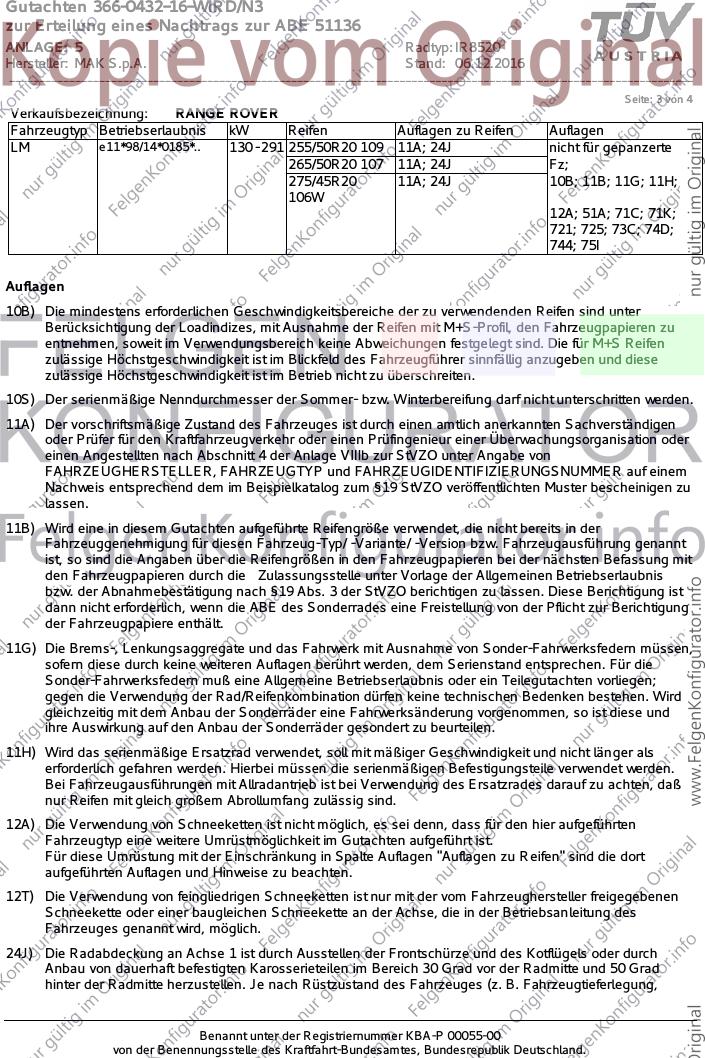 Gutachten 366-0432-16-WIRD/N3
zur Erteilung eines Nachtrags zur ABE 51136
ANLAGE: 5 Radtyp: IR8520
Hersteller: MAK S.p.A. Stand: 06.12.2016
TÜV
AUSTRIA
Kopie vom Original
Seite: 3 von 4
Verkaufsbezeichnung: RANGE ROVER
Fahrzeugtyp Betriebserlaubnis kW Reifen Auflagen zu Reifen Auflagen
LM e11*98/14*0185*.. 130-291 255/50R20 109 11A; 24J nicht für gepanzerte
265/50R20 107 11A; 24J Fz;
275/45R20 11A; 24J 10B; 11B; 11G; 11H;
106W
12A; 51A; 71C; 71K;
721; 725; 73C; 74D;
744; 75I
Auflagen
10B) Die mindestens erforderlichen Geschwindigkeitsbereiche der zu verwendenden Reifen sind unter
Berücksichtigung der Loadindizes, mit Ausnahme der Reifen mit M+S-Profil, den Fahrzeugpapieren zu
entnehmen, soweit im Verwendungsbereich keine Abweichungen festgelegt sind. Die für M+S Reifen
zulässige Höchstgeschwindigkeit ist im Blickfeld des Fahrzeugführer sinnfällig anzugeben und diese
zulässige Höchstgeschwindigkeit ist im Betrieb nicht zu überschreiten.
10S) Der serienmäßige Nenndurchmesser der Sommer- bzw. Winterbereifung darf nicht unterschritten werden.
11A) Der vorschriftsmäßige Zustand des Fahrzeuges ist durch einen amtlich anerkannten Sachverständigen
oder Prüfer für den Kraftfahrzeugverkehr oder einen Prüfingenieur einer Überwachungsorganisation oder
einen Angestellten nach Abschnitt 4 der Anlage VIIIb zur StVZO unter Angabe von
FAHRZEUGHERSTELLER, FAHRZEUGTYP und FAHRZEUGIDENTIFIZIERUNGSNUMMER auf einem
Nachweis entsprechend dem im Beispielkatalog zum §19 StVZO veröffentlichten Muster bescheinigen zu
lassen.
11B) Wird eine in diesem Gutachten aufgeführte Reifengröße verwendet, die nicht bereits in der
Fahrzeuggenehmigung für diesen Fahrzeug-Typ/ -Variante/ -Version bzw. Fahrzeugausführung genannt
ist, so sind die Angaben über die Reifengrößen in den Fahrzeugpapieren bei der nächsten Befassung mit
den Fahrzeugpapieren durch die Zulassungsstelle unter Vorlage der Allgemeinen Betriebserlaubnis
bzw. der Abnahmebestätigung nach §19 Abs. 3 der StVZO berichtigen zu lassen. Diese Berichtigung ist
dann nicht erforderlich, wenn die ABE des Sonderrades eine Freistellung von der Pflicht zur Berichtigung
der Fahrzeugpapiere enthält.
11G) Die Brems-, Lenkungsaggregate und das Fahrwerk mit Ausnahme von Sonder-Fahrwerksfedern müssen,
sofern diese durch keine weiteren Auflagen berührt werden, dem Serienstand entsprechen. Für die
Sonder-Fahrwerksfedern muß eine Allgemeine Betriebserlaubnis oder ein Teilegutachten vorliegen;
gegen die Verwendung der Rad/Reifenkombination dürfen keine technischen Bedenken bestehen. Wird
gleichzeitig mit dem Anbau der Sonderräder eine Fahrwerksänderung vorgenommen, so ist diese und
ihre Auswirkung auf den Anbau der Sonderräder gesondert zu beurteilen.
11H) Wird das serienmäßige Ersatzrad verwendet, soll mit mäßiger Geschwindigkeit und nicht länger als
erforderlich gefahren werden. Hierbei müssen die serienmäßigen Befestigungsteile verwendet werden.
Bei Fahrzeugausführungen mit Allradantrieb ist bei Verwendung des Ersatzrades darauf zu achten, daß
nur Reifen mit gleich großem Abrollumfang zulässig sind.
12A) Die Verwendung von Schneeketten ist nicht möglich, es sei denn, dass für den hier aufgeführten
Fahrzeugtyp eine weitere Umrüstmöglichkeit im Gutachten aufgeführt ist.
Für diese Umrüstung mit der Einschränkung in Spalte Auflagen "Auflagen zu Reifen" sind die dort
aufgeführten Auflagen und Hinweise zu beachten.
12T) Die Verwendung von feingliedrigen Schneeketten ist nur mit der vom Fahrzeughersteller freigegebenen
Schneekette oder einer baugleichen Schneekette an der Achse, die in der Betriebsanleitung des
Fahrzeuges genannt wird, möglich.
24J) Die Radabdeckung an Achse 1 ist durch Ausstellen der Frontschürze und des Kotflügels oder durch
Anbau von dauerhaft befestigten Karosserieteilen im Bereich 30 Grad vor der Radmitte und 50 Grad
hinter der Radmitte herzustellen. Je nach Rüstzustand des Fahrzeuges (z. B. Fahrzeugtieferlegung,
Benannt unter der Registriernummer KBA-P 00055-00
von der Benennungsstelle des Kraftfahrt-Bundesamtes, Bundesrepublik Deutschland.
FELGEN
KONFIGURATOR
FelgenKonfigurator.info
nur gültig im Original
www.FelgenKonfigurator.info